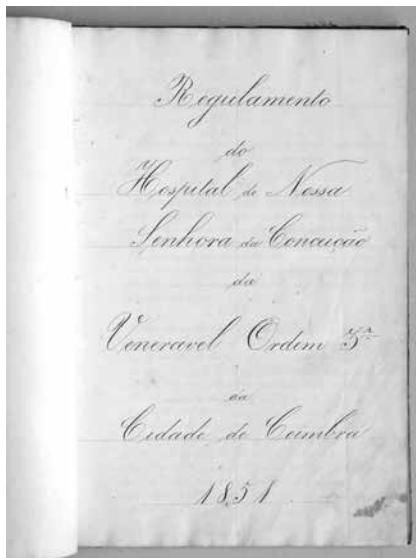 Regulamento
do
Hospital de Nossa
Senhora da Conceição
da
Veneravel Ordem 3ª
da
Cidade de Coimbra
1851